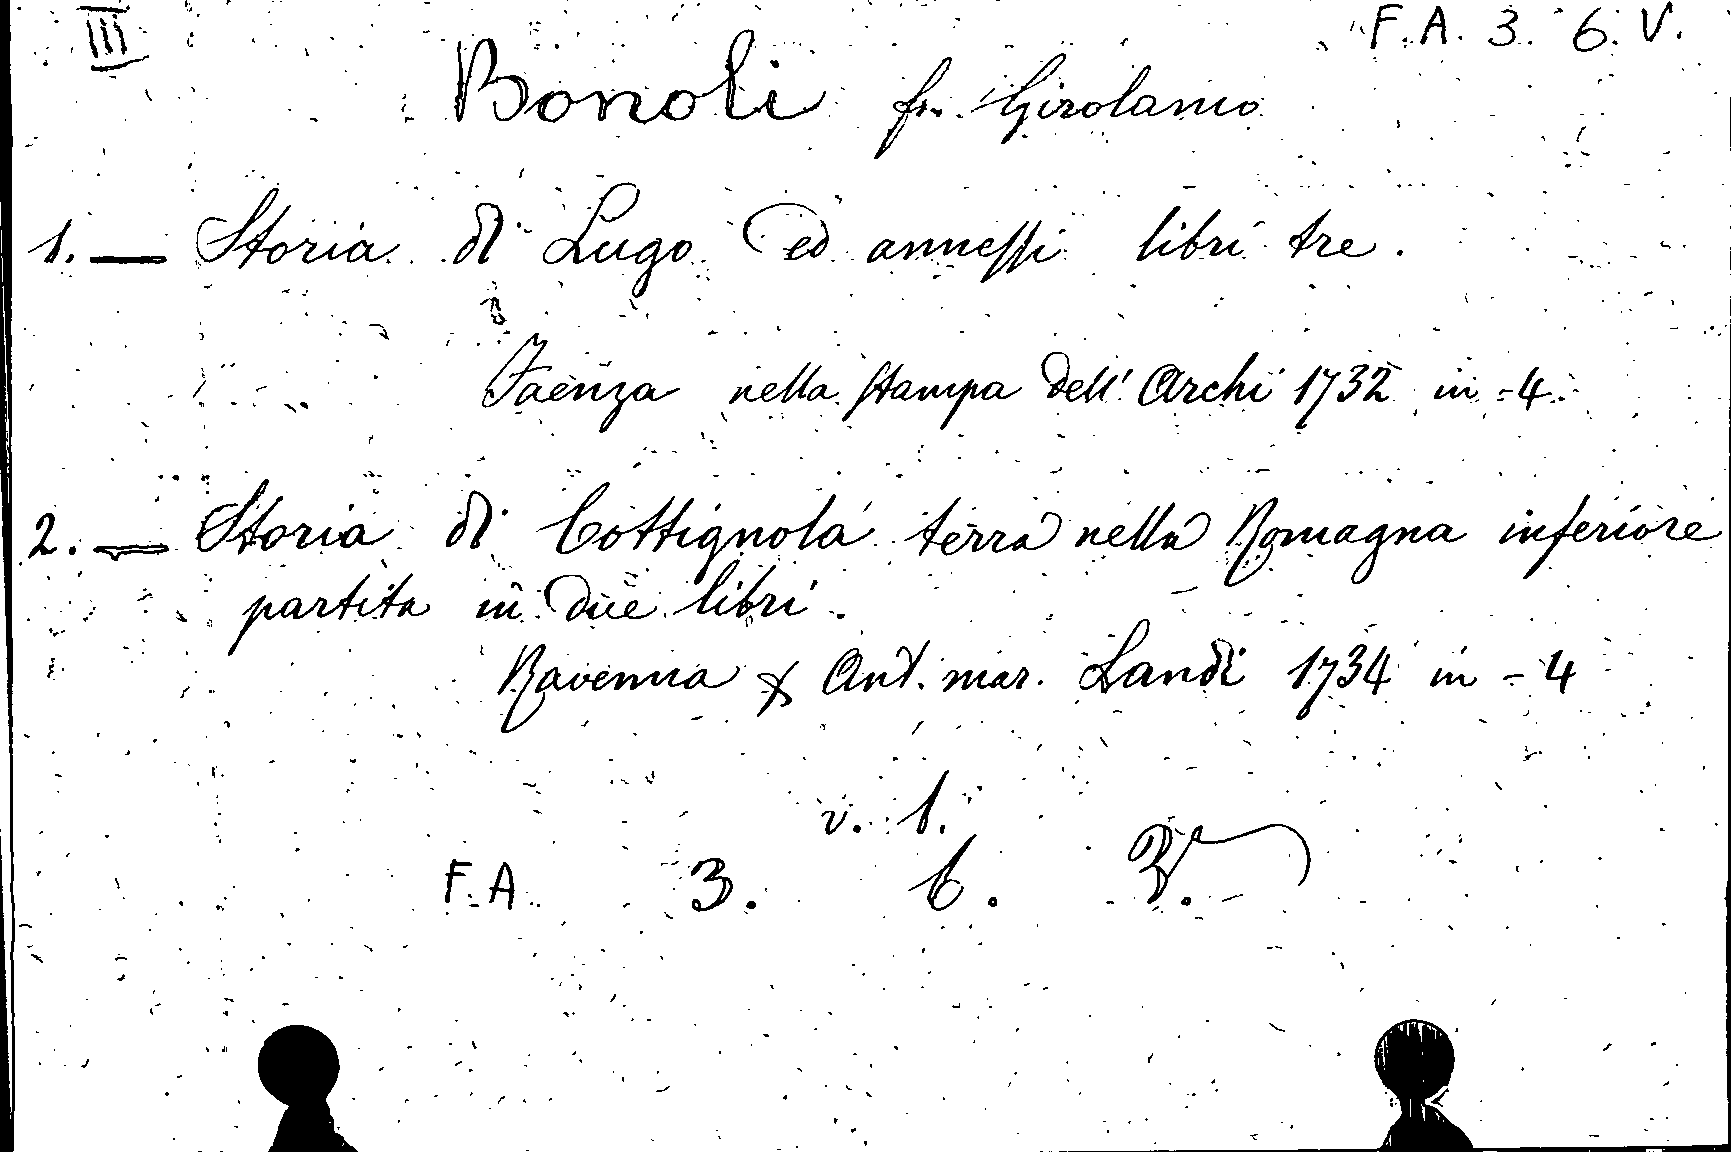 III
F.A. 3. 6. V.
Bonoli fr. Girolamo
1. — Storia di Lugo ed annessi libri tre.
Faenza nella stampa dell' Archi 1732 in-4.
2. — Storia di Cottignola terra nella Romagna inferiore
partita in due libri.
Ravenna Ant. mar. Landi 1734 in-4
v. 1.
F.A. 3. 6. V.